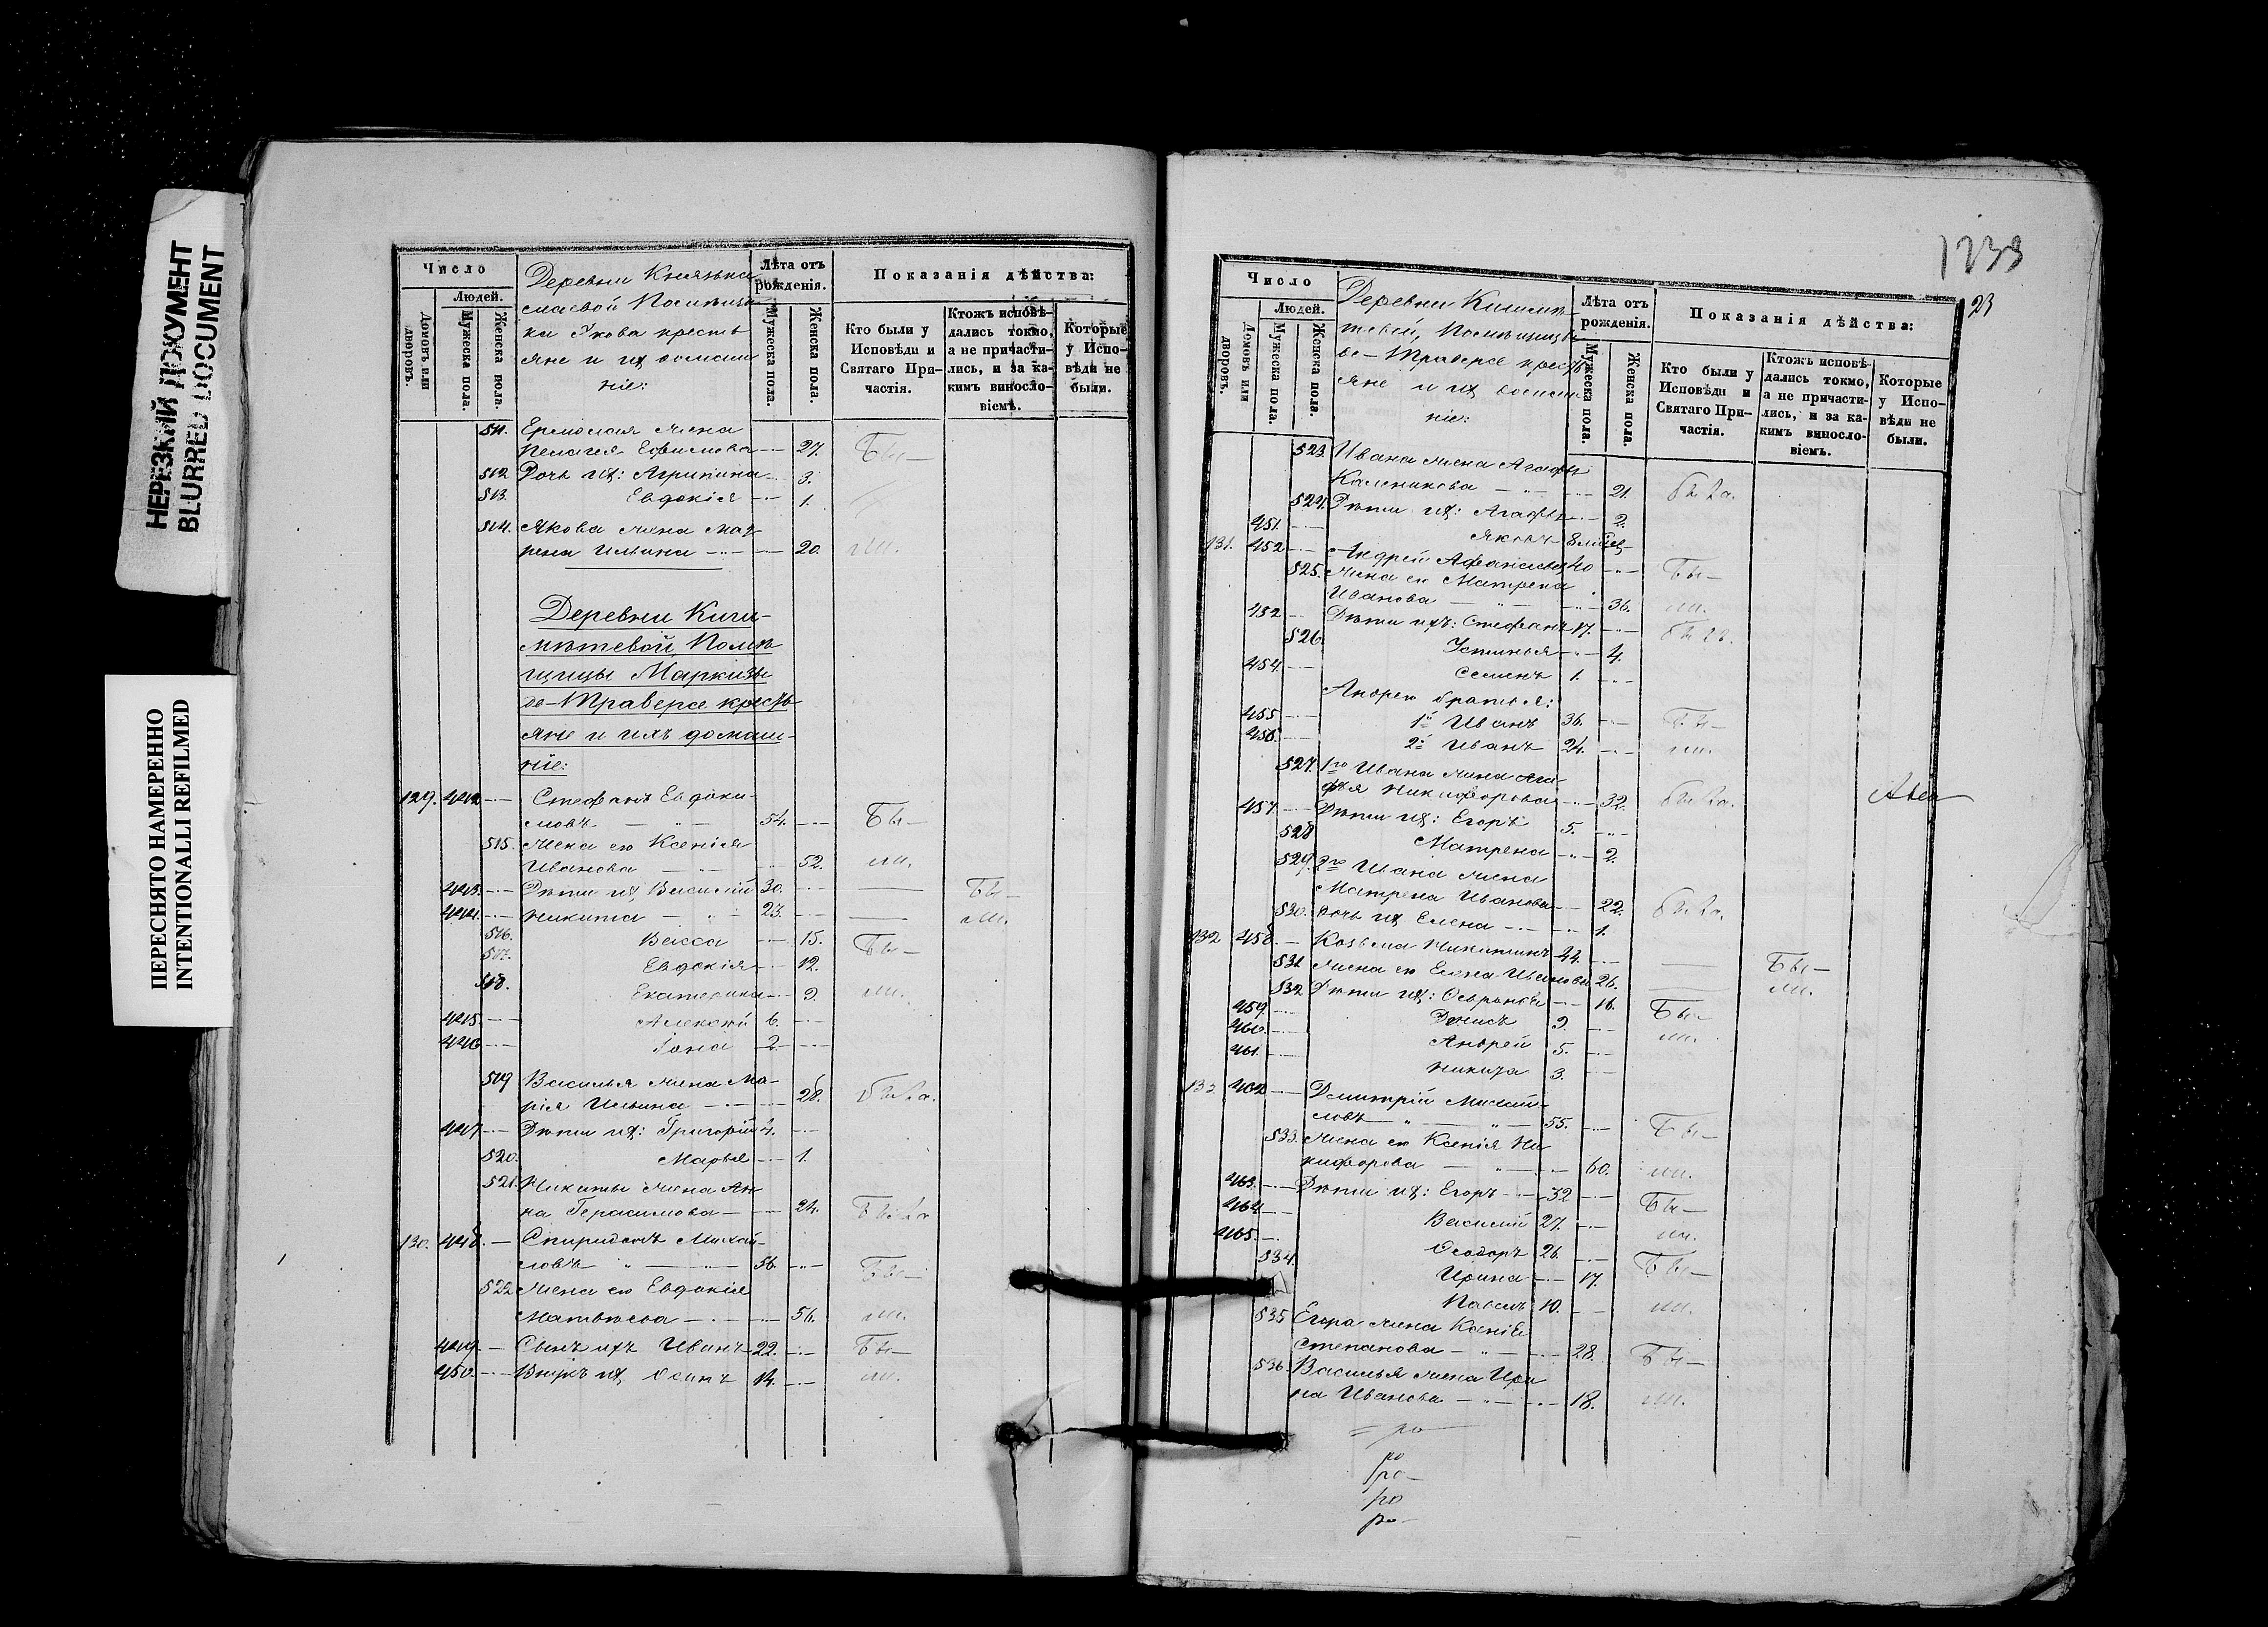 НЕРЕЗКИЙ ДОКУМЕНТ
BLURRED DOCUMENT
ПЕРЕСНЯТО НАМЕРЕННО
INTENTIONALLI REFILMED
Число
Людей.
Домовъ или дворовъ.
Мужеска пола.
Женска пола.
Деревни
ка крестья
яне и их домаш
ніе:
Лѣта отъ рожденія.
Мужеска пола.
Женска пола.
Показанія дѣйства:
Кто были у Исповѣди и Святаго Причастія.
Ктожъ исповѣдались токмо, а не причастились, и за какимъ винословіемъ.
Которые у Исповѣди не были.
511. Ермолая жена
Пелагея Ефимова 27. Бы-
512 Дочь их: Агрипина 3.
513. Евдокія 1.
514. Якова жена Мат
рена Ильина 20. ли.
Деревни Кичи-
мѣтевой, Помѣ
щицы Маркизы
де-Траверсе кресть
яне и ихъ домаш-
ніе:
129. 442 Стефанъ Евдоки-
мовъ 54. Бы-
515. Жена ею Ксенія
Иванова 52. ли.
443. Дѣти их Василий 30. Бы-
444. Никита 23. ли.
516. Васса 15. Бы-
517. Евдокія 12.
518. Екатерина 9. ли.
445. Алексѣй 6.
446 Іона 2
519 Василья жена Ма-
рія Ильина 28. была.
447 Дѣти их: Григорій 4.
520. Марья 1.
521. Никиты жена Ан
на Герасимова 24. Была
130. 448. Спиридонъ Михай-
ловъ 56 Бы-
522 Жена ею Евдокія
Матвѣева 56. ли.
449. Сынъ ихъ Иванъ 22. Бы-
450. Внукъ их Осипъ 14. ли.
1233
23
Число
Людей.
Домовъ или дворовъ.
Мужеска пола.
Женска пола.
Деревни Кичимѣ-
тевой, Помѣщицы
де-Траверсе кресть
яне и их домаш
ніе:
Лѣта отъ рожденія.
Мужеска пола.
Женска пола.
Показанія дѣйства:
Кто были у Исповѣди и Святаго Причастія.
Ктожъ исповѣдались токмо, а не причастились, и за какимъ винословіемъ.
Которые у Исповѣди не были.
523. Ивана жена Агафья
Каленикова 21. была.
524. Дѣти их: Агафья 2.
451. Яковъ 8
131. 452 Андрей Афанасьев 40 Бы-
525. Жена ею Матрена
Иванова 36. ли.
452 Дѣти ихъ: Стефанъ 17. былъ.
526. Устинья 4.
454. Семенъ 1.
Андрея братья:
455 1й Иванъ 36. Бы-
456. 2й Иванъ 24. ли.
527. 1го Ивана жена Ага-
фья Никифорова 32. была.
457. Дѣти их: Егоръ 5.
528 Матрена 2.
529. 2го Ивана жена
Матрена Иванова 22. была.
530. Дочь их Елена 1.
132 458. Козьма Никитинъ 44. Бы-
531. Жена ею Елена Иванова 26. ли.
532 Дѣти их: 16. Бы-
459. Денисъ 9. ли.
460. Андрей 5.
461. Никита 3.
133 462 Дмитрій Михай-
ловъ 55. Бы-
533. Жена ею Ксенія Ни
кифорова 60. ли.
463. Дѣти их: Егоръ 32 Бы-
464 Василий 27. ли.
465. Ѳеодоръ 26 Бы-
534. Ирина 17.
Павелъ 10. ли.
535 Егора жена Ксенія
Степанова 28. Бы-
536. Василья жена Ири
на Иванова 18. ли.
ро
ро
ро
ро
ро